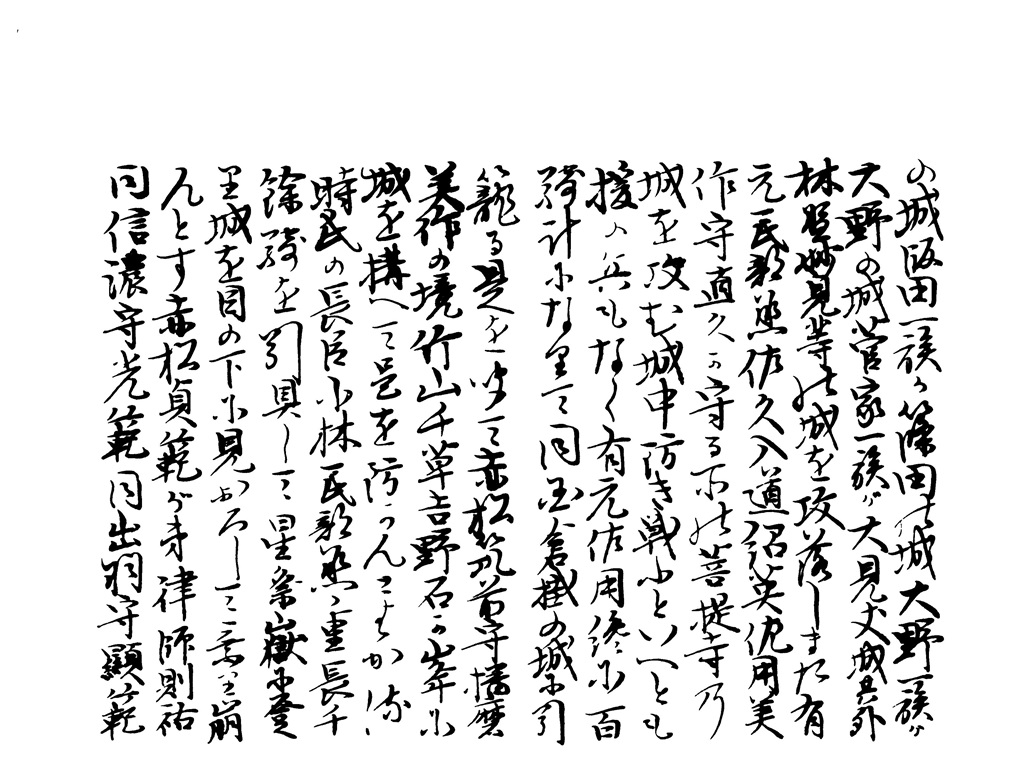 の城飯田一族ヶ篠向の城大野一族ヶ
大野の城菅家一族ガ大見丈城其外
林野妙見等の城を攻落しまた有
元民部丞佐久入道沼英佐用美
作守直久ヶ守る所の菩提寺乃
城を攻む城中防き戦ふといへとも
援の兵もなく有元佐用終に百
騎計になりて同国倉掛の城に引
籠る是を聞て赤松筑前守播磨
美作の境竹山千草吉野石ヶ峯に
城を構へて是を防かんとするか
時氏の長臣小林民部丞重長千
餘騎を引具して星祭嶽に登
り城を目の下に見おろして
んとす赤松貞範が弟律師則祐
同信濃守光範同出羽守顕範